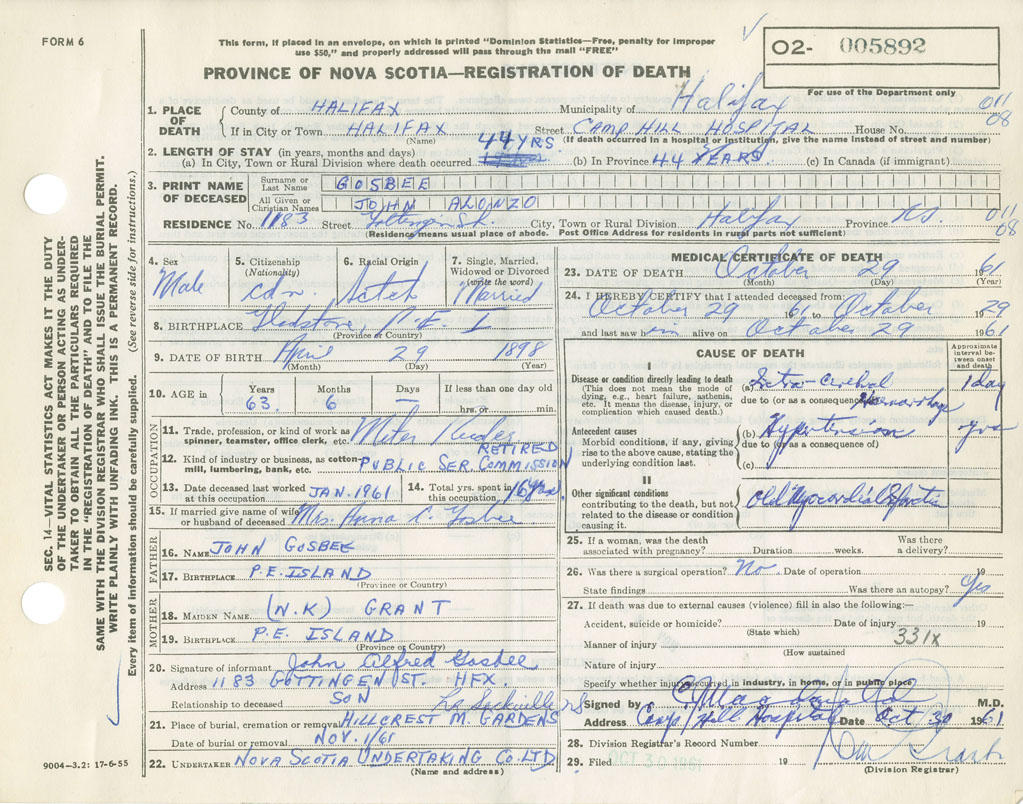 FORM 6
This form, if placed in an envelope, on which is printed "Dominion Statistics—Free, penalty for improper
use $50," and properly addressed will pass through the mail "FREE"
02- 005892
For use of the Department only
PROVINCE OF NOVA SCOTIA—REGISTRATION OF DEATH
1. PLACE OF DEATH
County of HALIFAX Municipality of Halifax 011
If in City or Town HALIFAX Street CAMP HILL HOSPITAL House No. 08
(Name) (If death occurred in a hospital or institution, give the name instead of street and number)
2. LENGTH OF STAY (in years, months and days)
(a) In City, Town or Rural Division where death occurred 44 YRS (b) In Province 44 YEARS (c) In Canada (if immigrant)
3. PRINT NAME OF DECEASED
Surname or Last Name GOSBEE
All Given or Christian Names JOHN ALONZO
RESIDENCE No. 1183 Street Gottingen St. City, Town or Rural Division Halifax Province N.S. 011 08
(Residence means usual place of abode. Post Office Address for residents in rural parts not sufficient)
4. Sex Male
5. Citizenship (Nationality) Cdn.
6. Racial Origin Scotch
7. Single, Married, Widowed or Divorced (write the word) Married
8. BIRTHPLACE Gladstone, P.E.I
(Province or Country)
9. DATE OF BIRTH April 29 1898
(Month) (Day) (Year)
10. AGE in Years 63 Months 6 Days — If less than one day old hrs. or min.
OCCUPATION
11. Trade, profession, or kind of work as spinner, teamster, office clerk, etc. Meter Reader
RETIRED
12. Kind of industry or business, as cotton-mill, lumbering, bank, etc. PUBLIC SER. COMMISSION
13. Date deceased last worked at this occupation JAN. 1961 14. Total yrs. spent in this occupation 16 years
15. If married give name of wife or husband of deceased Mrs. Anna C. Gosbee
FATHER
16. NAME JOHN GOSBEE
17. BIRTHPLACE P.E. ISLAND
(Province or Country)
MOTHER
18. MAIDEN NAME (N.K) GRANT
19. BIRTHPLACE P.E. ISLAND
(Province or Country)
20. Signature of informant John Alfred Gosbee
Address 1183 GOTTINGEN ST. HFX.
Relationship to deceased SON Lr Sackville NS
21. Place of burial, cremation or removal HILLCREST M. GARDENS
Date of burial or removal NOV. 1/61
22. UNDERTAKER NOVA SCOTIA UNDERTAKING CO. LTD
(Name and address)
9004—3.2: 17-6-55
MEDICAL CERTIFICATE OF DEATH
23. DATE OF DEATH October 29 1961
(Month) (Day) (Year)
24. I HEREBY CERTIFY that I attended deceased from:
October 29 1961 to October 29 19
and last saw him alive on October 29 1961
CAUSE OF DEATH
Approximate interval between onset and death
I
Disease or condition directly leading to death
(This does not mean the mode of dying, e.g., heart failure, asthenia, etc. It means the disease, injury, or complication which caused death.)
(a) Intra-Cerebral Haemorrhage 1 day
due to (or as a consequence of)
Antecedent causes
Morbid conditions, if any, giving rise to the above cause, stating the underlying condition last.
(b) Hypertension yrs
due to (or as a consequence of)
(c)
II
Other significant conditions
contributing to the death, but not related to the disease or condition causing it.
Old Myocardial Infarction
25. If a woman, was the death associated with pregnancy? Duration weeks. Was there a delivery?
26. Was there a surgical operation? No Date of operation 19
State findings Was there an autopsy? Yes
27. If death was due to external causes (violence) fill in also the following:—
Accident, suicide or homicide? Date of injury 19
(State which)
Manner of injury 331X
(How sustained
Nature of injury
Specify whether injury occurred in industry, in home, or in public place
Signed by M.D.
Address Camp Hill Hospital Date Oct 30 1961
28. Division Registrar's Record Number
29. Filed OCT 30 1961 19
(Division Registrar)
SEC. 14—VITAL STATISTICS ACT MAKES IT THE DUTY
OF THE UNDERTAKER OR PERSON ACTING AS UNDER-
TAKER TO OBTAIN ALL THE PARTICULARS REQUIRED
IN THE "REGISTRATION OF DEATH" AND TO FILE THE
SAME WITH THE DIVISION REGISTRAR WHO SHALL ISSUE THE BURIAL PERMIT.
WRITE PLAINLY WITH UNFADING INK. THIS IS A PERMANENT RECORD.
Every item of information should be carefully supplied. (See reverse side for instructions.)